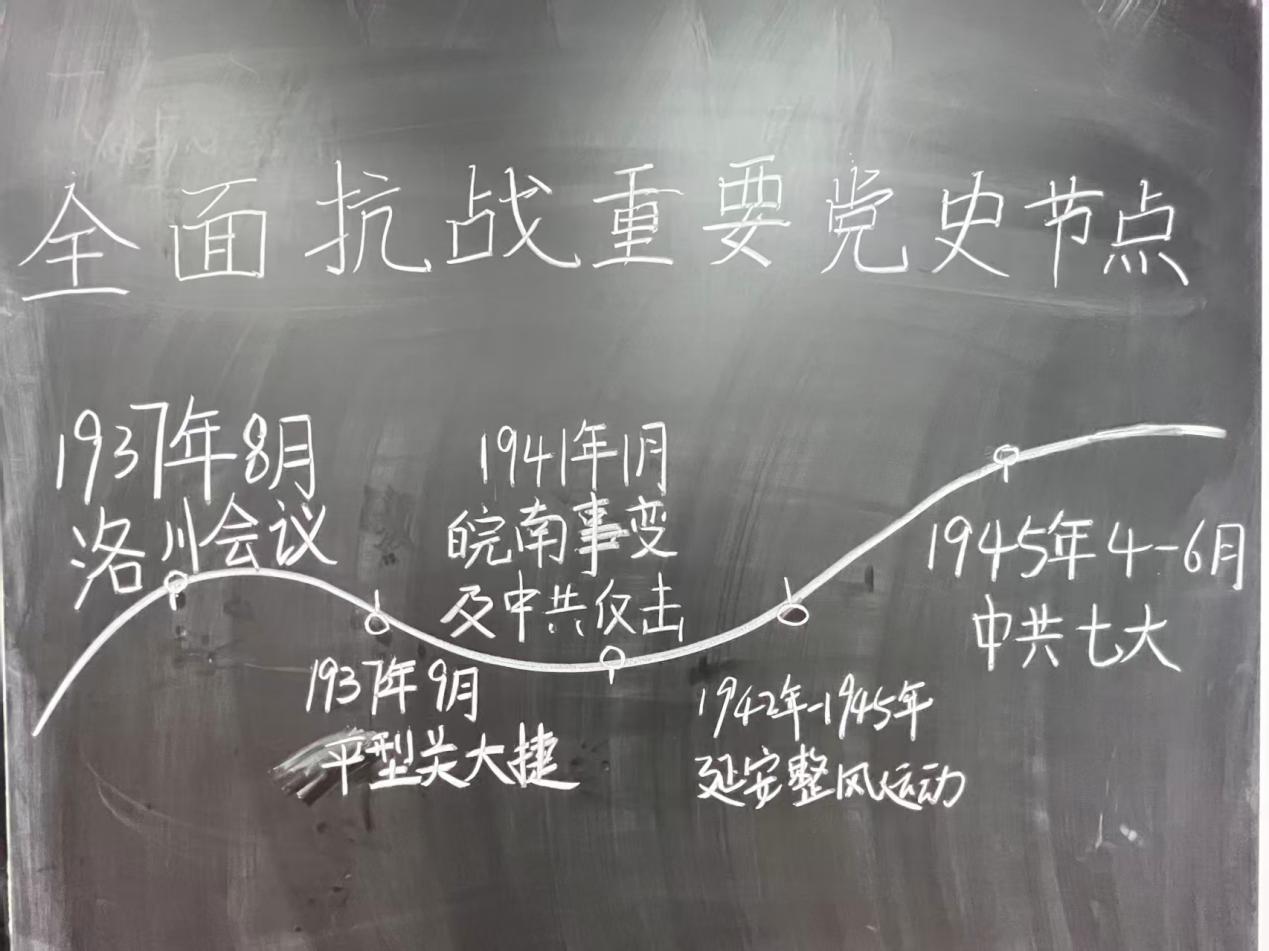 全面抗战重要党史节点
1937年8月
洛川会议
1937年9月
平型关大捷
1941年1月
皖南事变
及中共反击
1942年-1945年
延安整风运动
1945年4-6月
中共七大